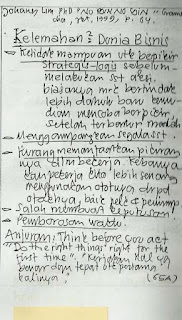 Johanes Lim PhD "NO GUN NO GIN" Grame
dia, jkt, 1999, P. 64.
Kelemahan² Dunia Bisnis
- Ketidak mampuan utk berpikir
Strategy-logi sebelum
melakukan sst aksi
biasanya mrk bertindak
lebih dahulu baru kemu-
dian mencoba berpikir
setelah terbentur masalah
- Menggampangkan segala sst
- Kurang memanfaatkan pikiran
nya dlm bekerja. Kebanya
kan pekerja kita lebih senang
menggunakan ototnya drpd
otaknya, baik pek² & pemimp.
- Salah membuat keputusan
- Pemborosan waktu.
Anjuran: Think before you act
"Do the right things right for the
first time". "Kerjakan hal yg
benar dgm tepat utk pertama
kalinya."